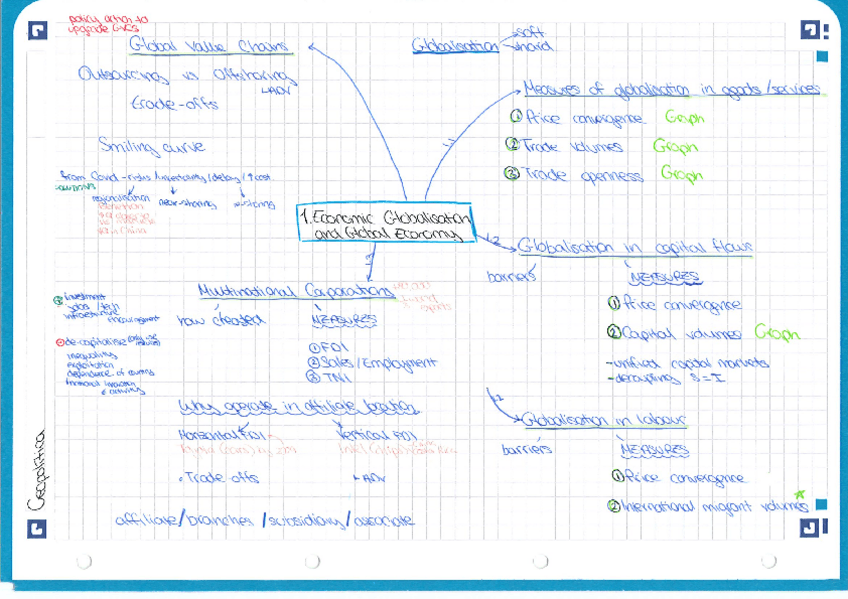 policy action to
upgrade GVCs
Global Value Chains
Outsourcing vs Offshoring
↳ADV
trade-offs
Smiling curve
from Covid - risks/uncertainty/delay/↑cost
regionalisation
near-shoring
Globalisation
soft
hard
Measures of globalisation in goods/services
① Price convergence Graph
② Trade volumes Graph
③ Trade openness Graph
1. Economic Globalisation
and Global Economy
Globalisation in capital flows
barriers
MEASURES
① Price convergence
② Capital volumes Graph
- unified capital markets
- decoupling S=I
Globalisation in labour
barriers
MEASURES
① Price convergence
② International migrant volumes
Multinational Corporations
how created
MEASURES
① FDI
② Sales/Employment
③ TNI
investment
jobs/tech
infrastructure
de-capitalise
inequality
exploitation
dependence of country
Why operate in affiliate location
Horizontal FDI
Vertical FDI
Trade offs
ADV
affiliate/branches/subsidiary/associate
Geopolitical